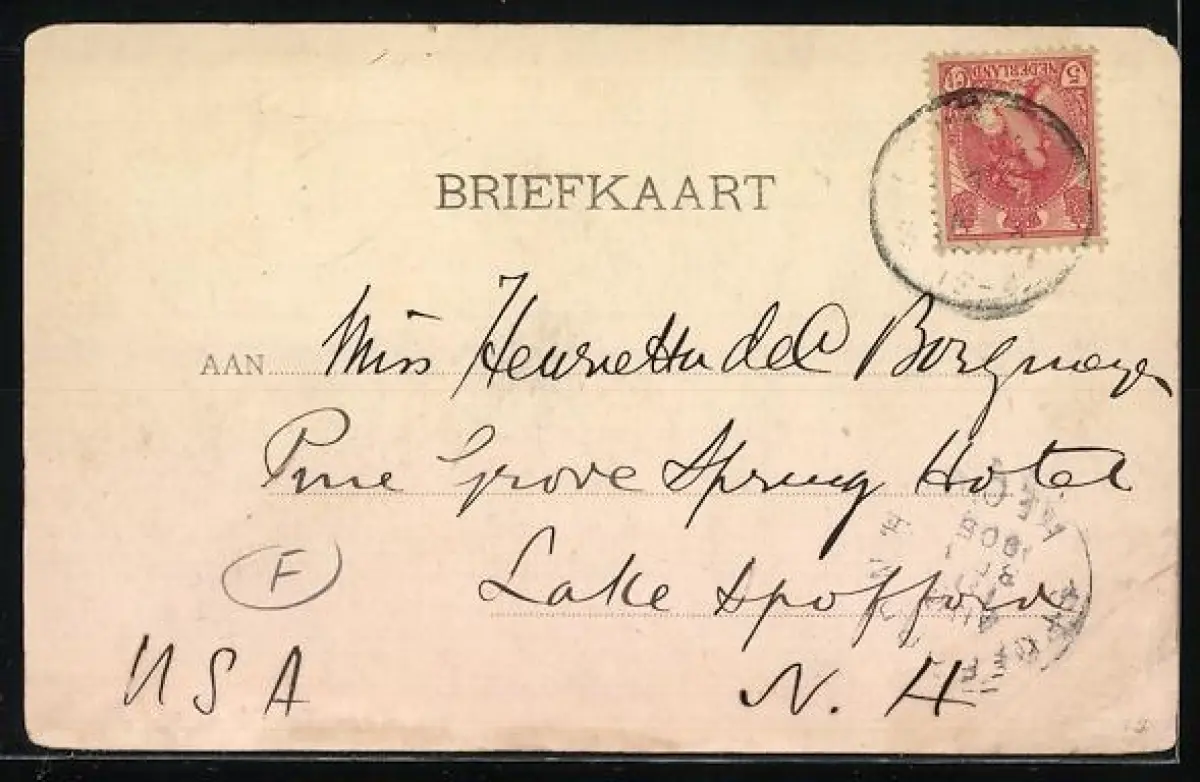 5 NEDERLAND CT
BRIEFKAART
AAN Miss Henrietta de C Borgmeyer
Pine Grove Spring Hotel
Lake Spofford
F
USA
N. H